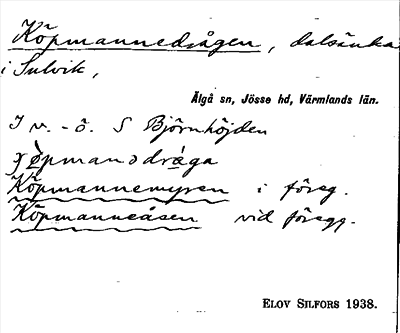 Köpmannedrågen, dalsänka
i Sulvik,
Älgå sn, Jösse hd, Värmlands län.
I v.-ö. S Björnhöjden
Köpmannemyren i föreg.
Köpmanneåsen vidföregg.
ELOV SILFORS 1938.